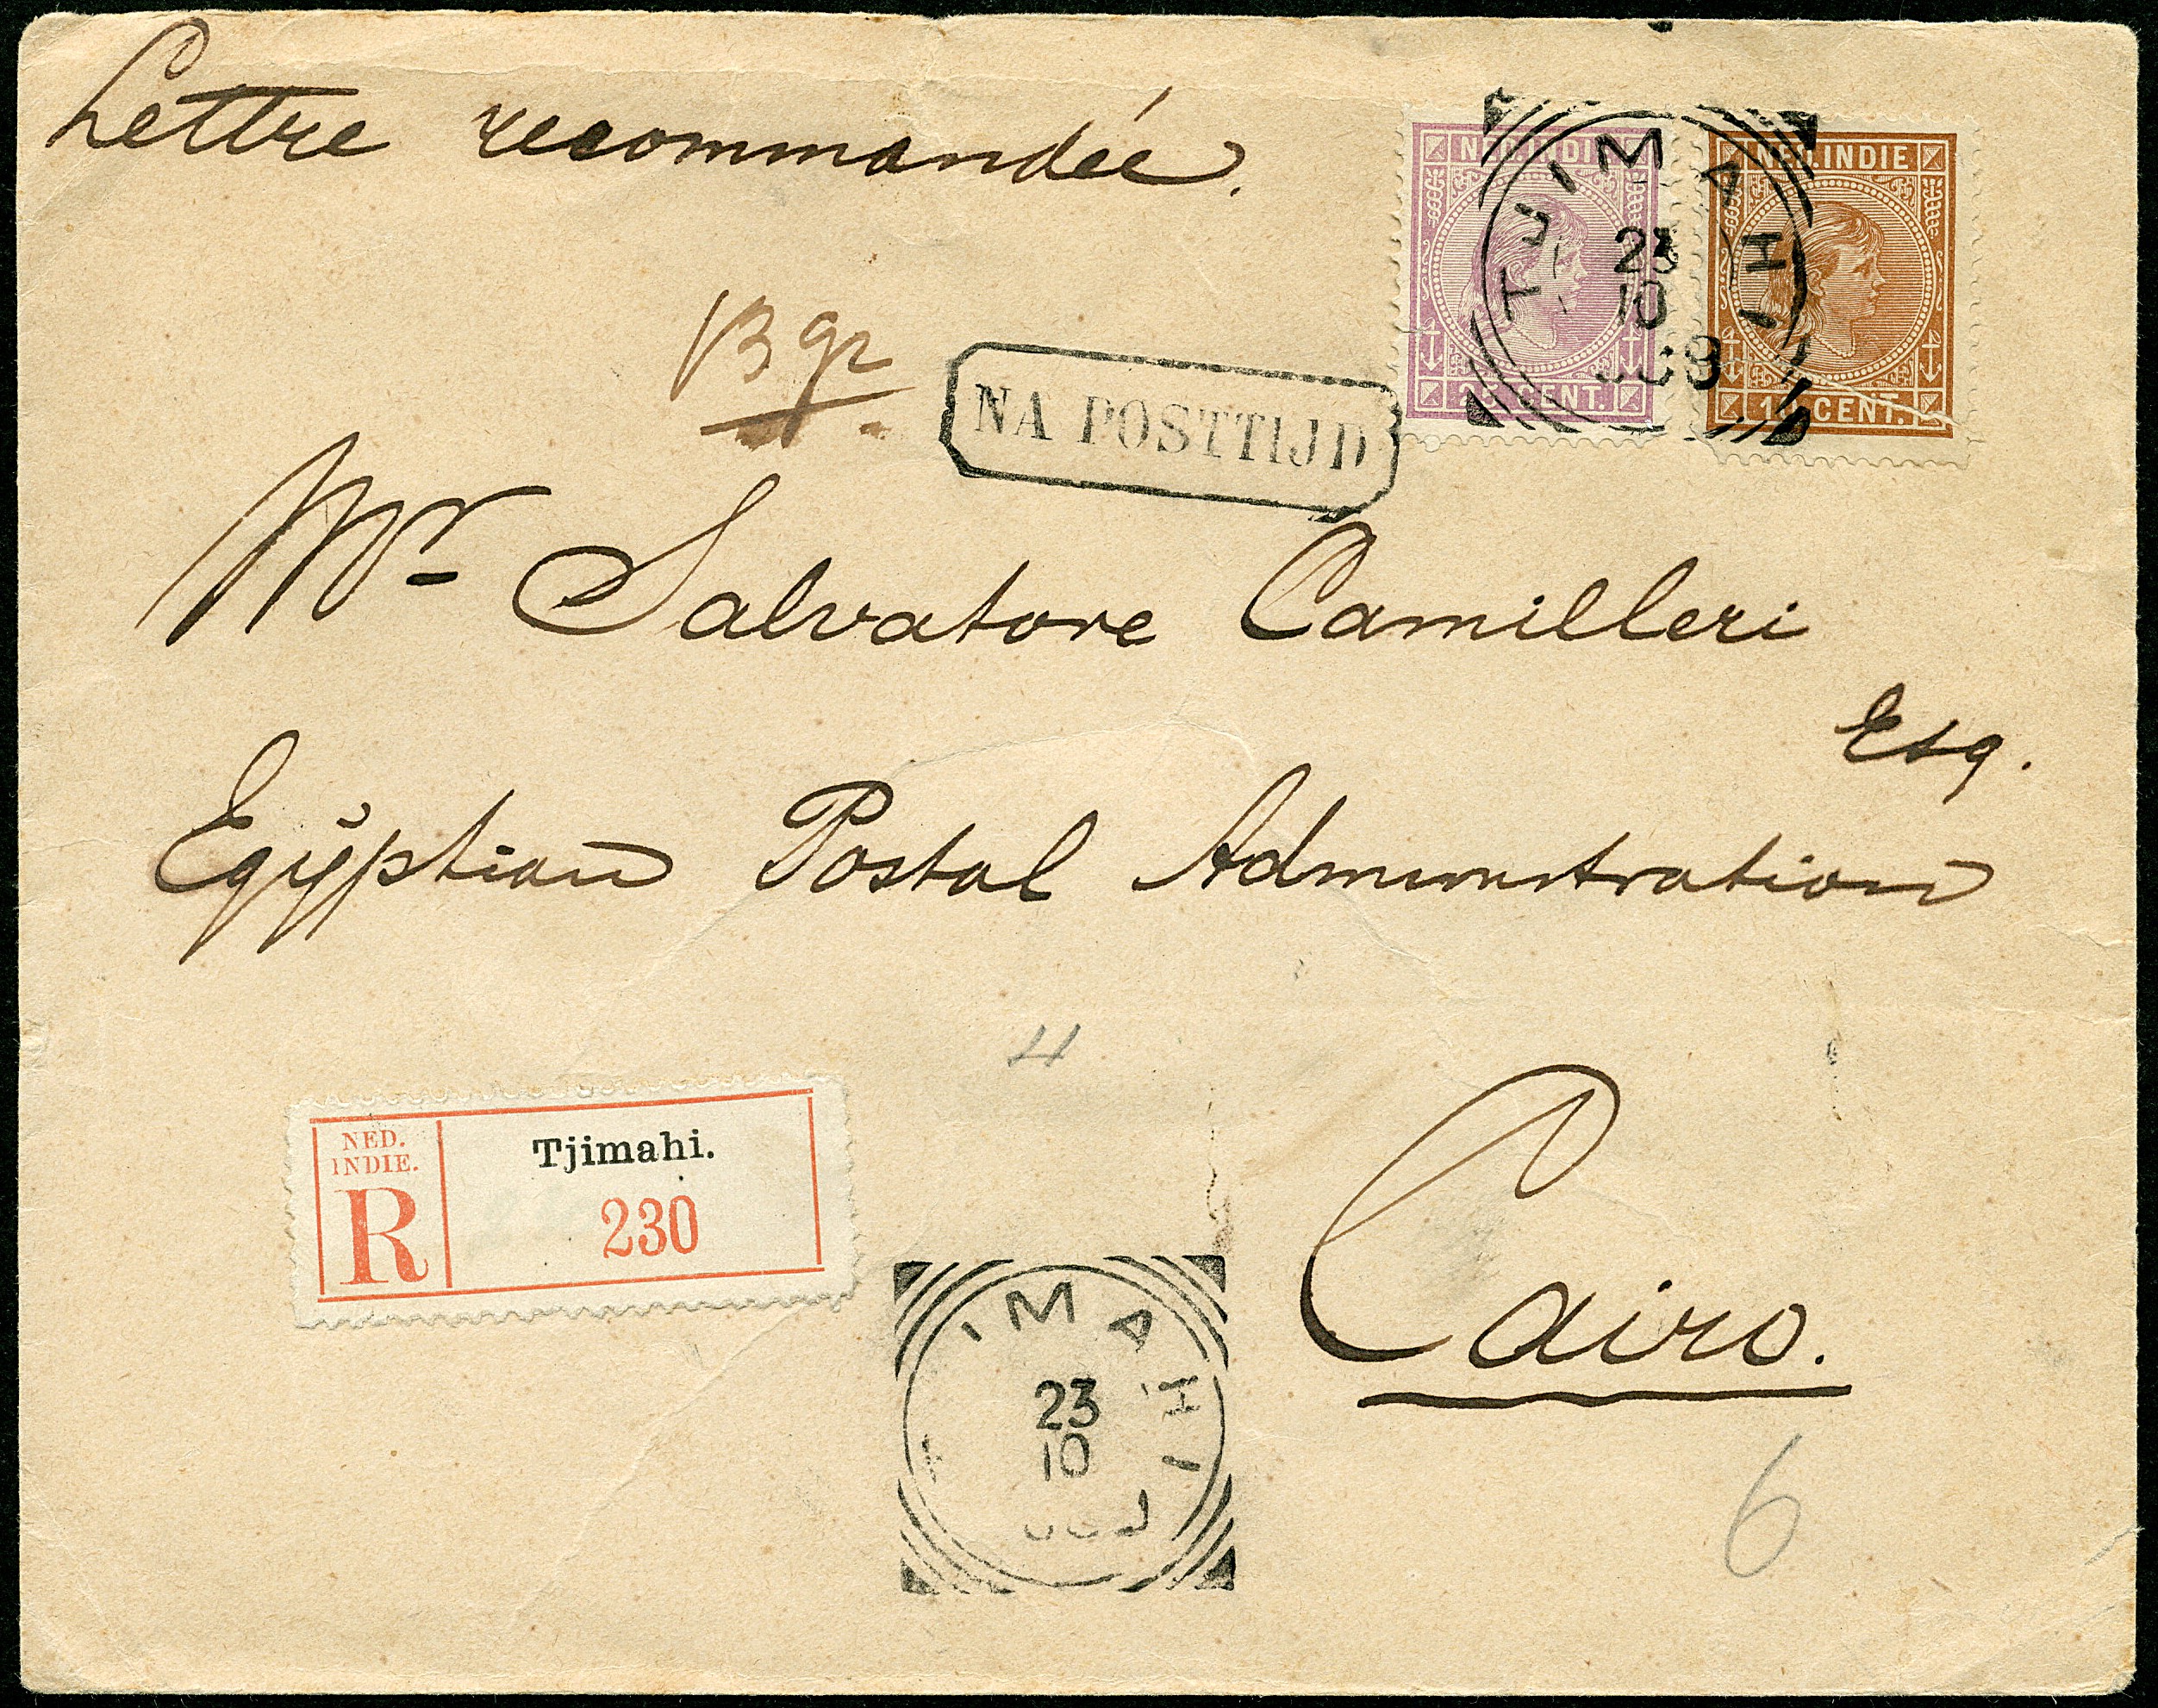 Lettre recommandée.
NED. INDIE
NED. INDIE
TJIMAHI
23
10
25 CENT.
10 CENT.
13 gr
NA POSTTIJD
Mr Salvatore Camilleri
Esq.
Egÿptian Postal Administration
4
NED.
INDIE.
R
Tjimahi.
230
Cairo.
IMAHI
23
10
6